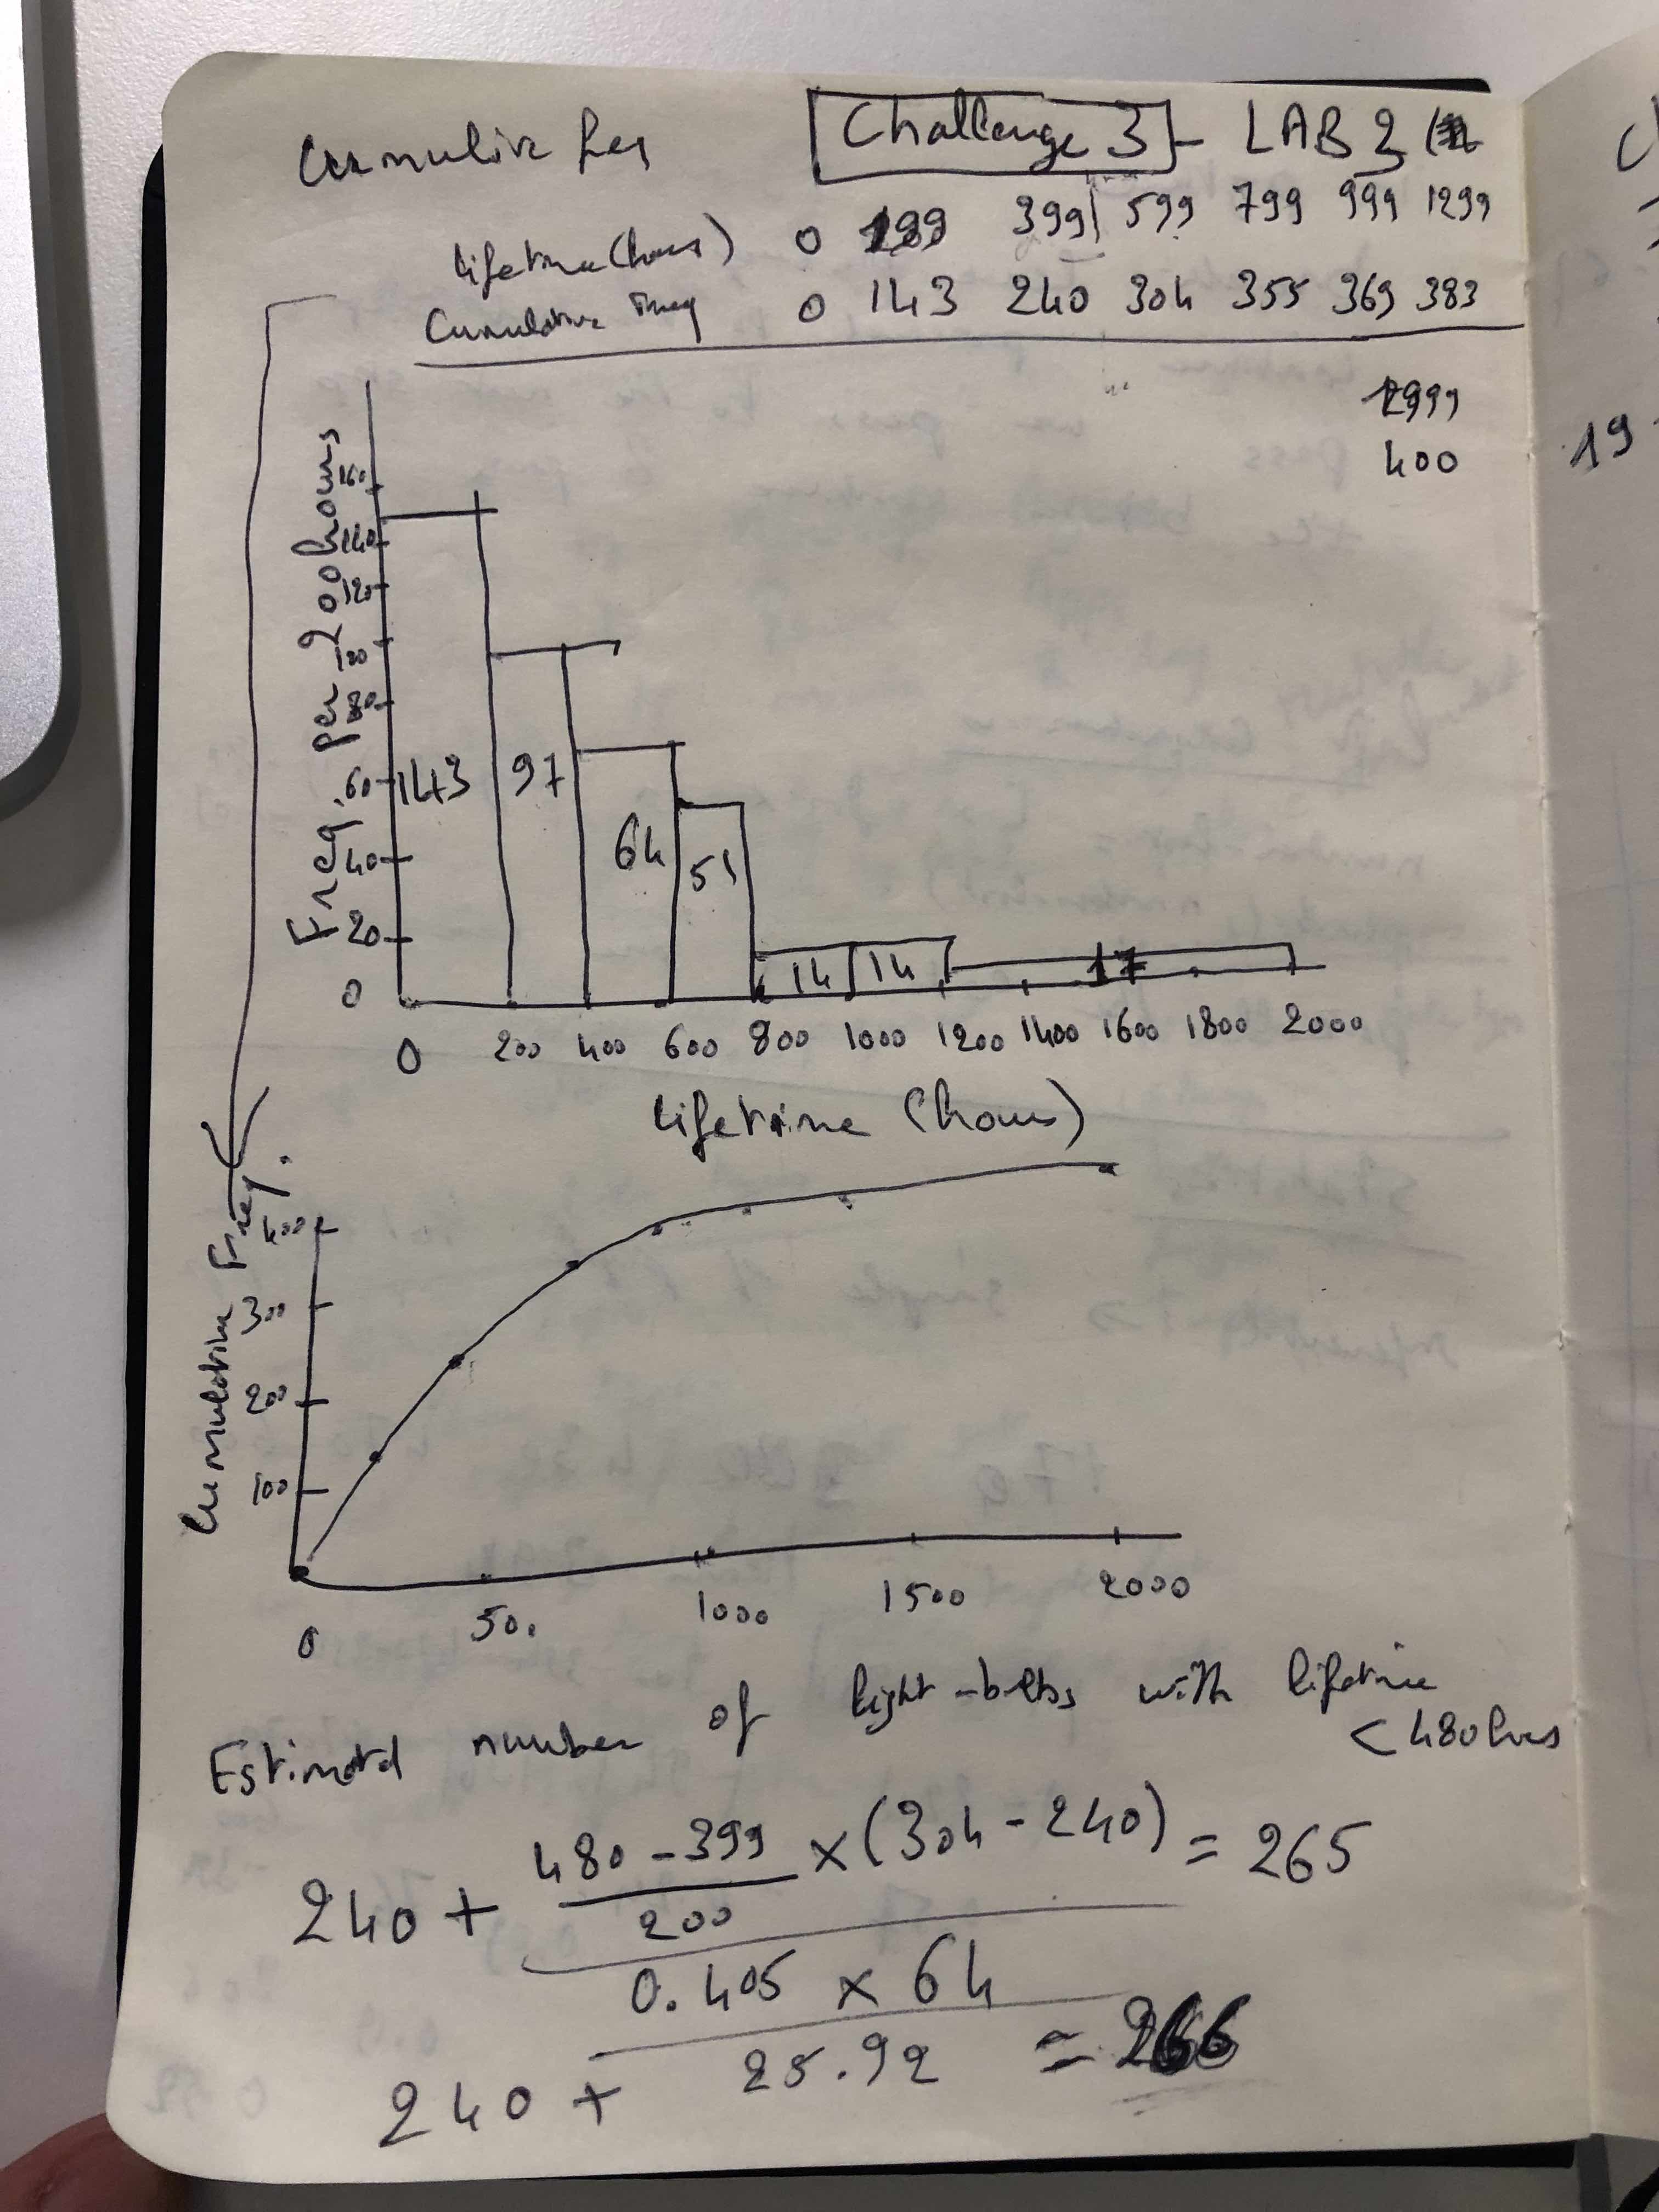 Cumulive freq Challenge 3 - LAB 3
Lifetime (hours) 0 199 399 599 799 999 1299
Cumulative freq 0 143 240 304 355 369 383
1999
400
19
Freq. per 200 hours
160
140
120
100
80
60
40
20
0
143
97
64
51
14
14
17
0 200 400 600 800 1000 1200 1400 1600 1800 2000
Lifetime (hours)
Cumulative Freq.
400
300
200
100
0 500 1000 1500 2000
Estimated number of light-bulbs with lifetime
< 480 hrs
240 + 480 - 399 / 200 × (304 - 240) = 265
0.405 × 64
240 + 25.92 = 266